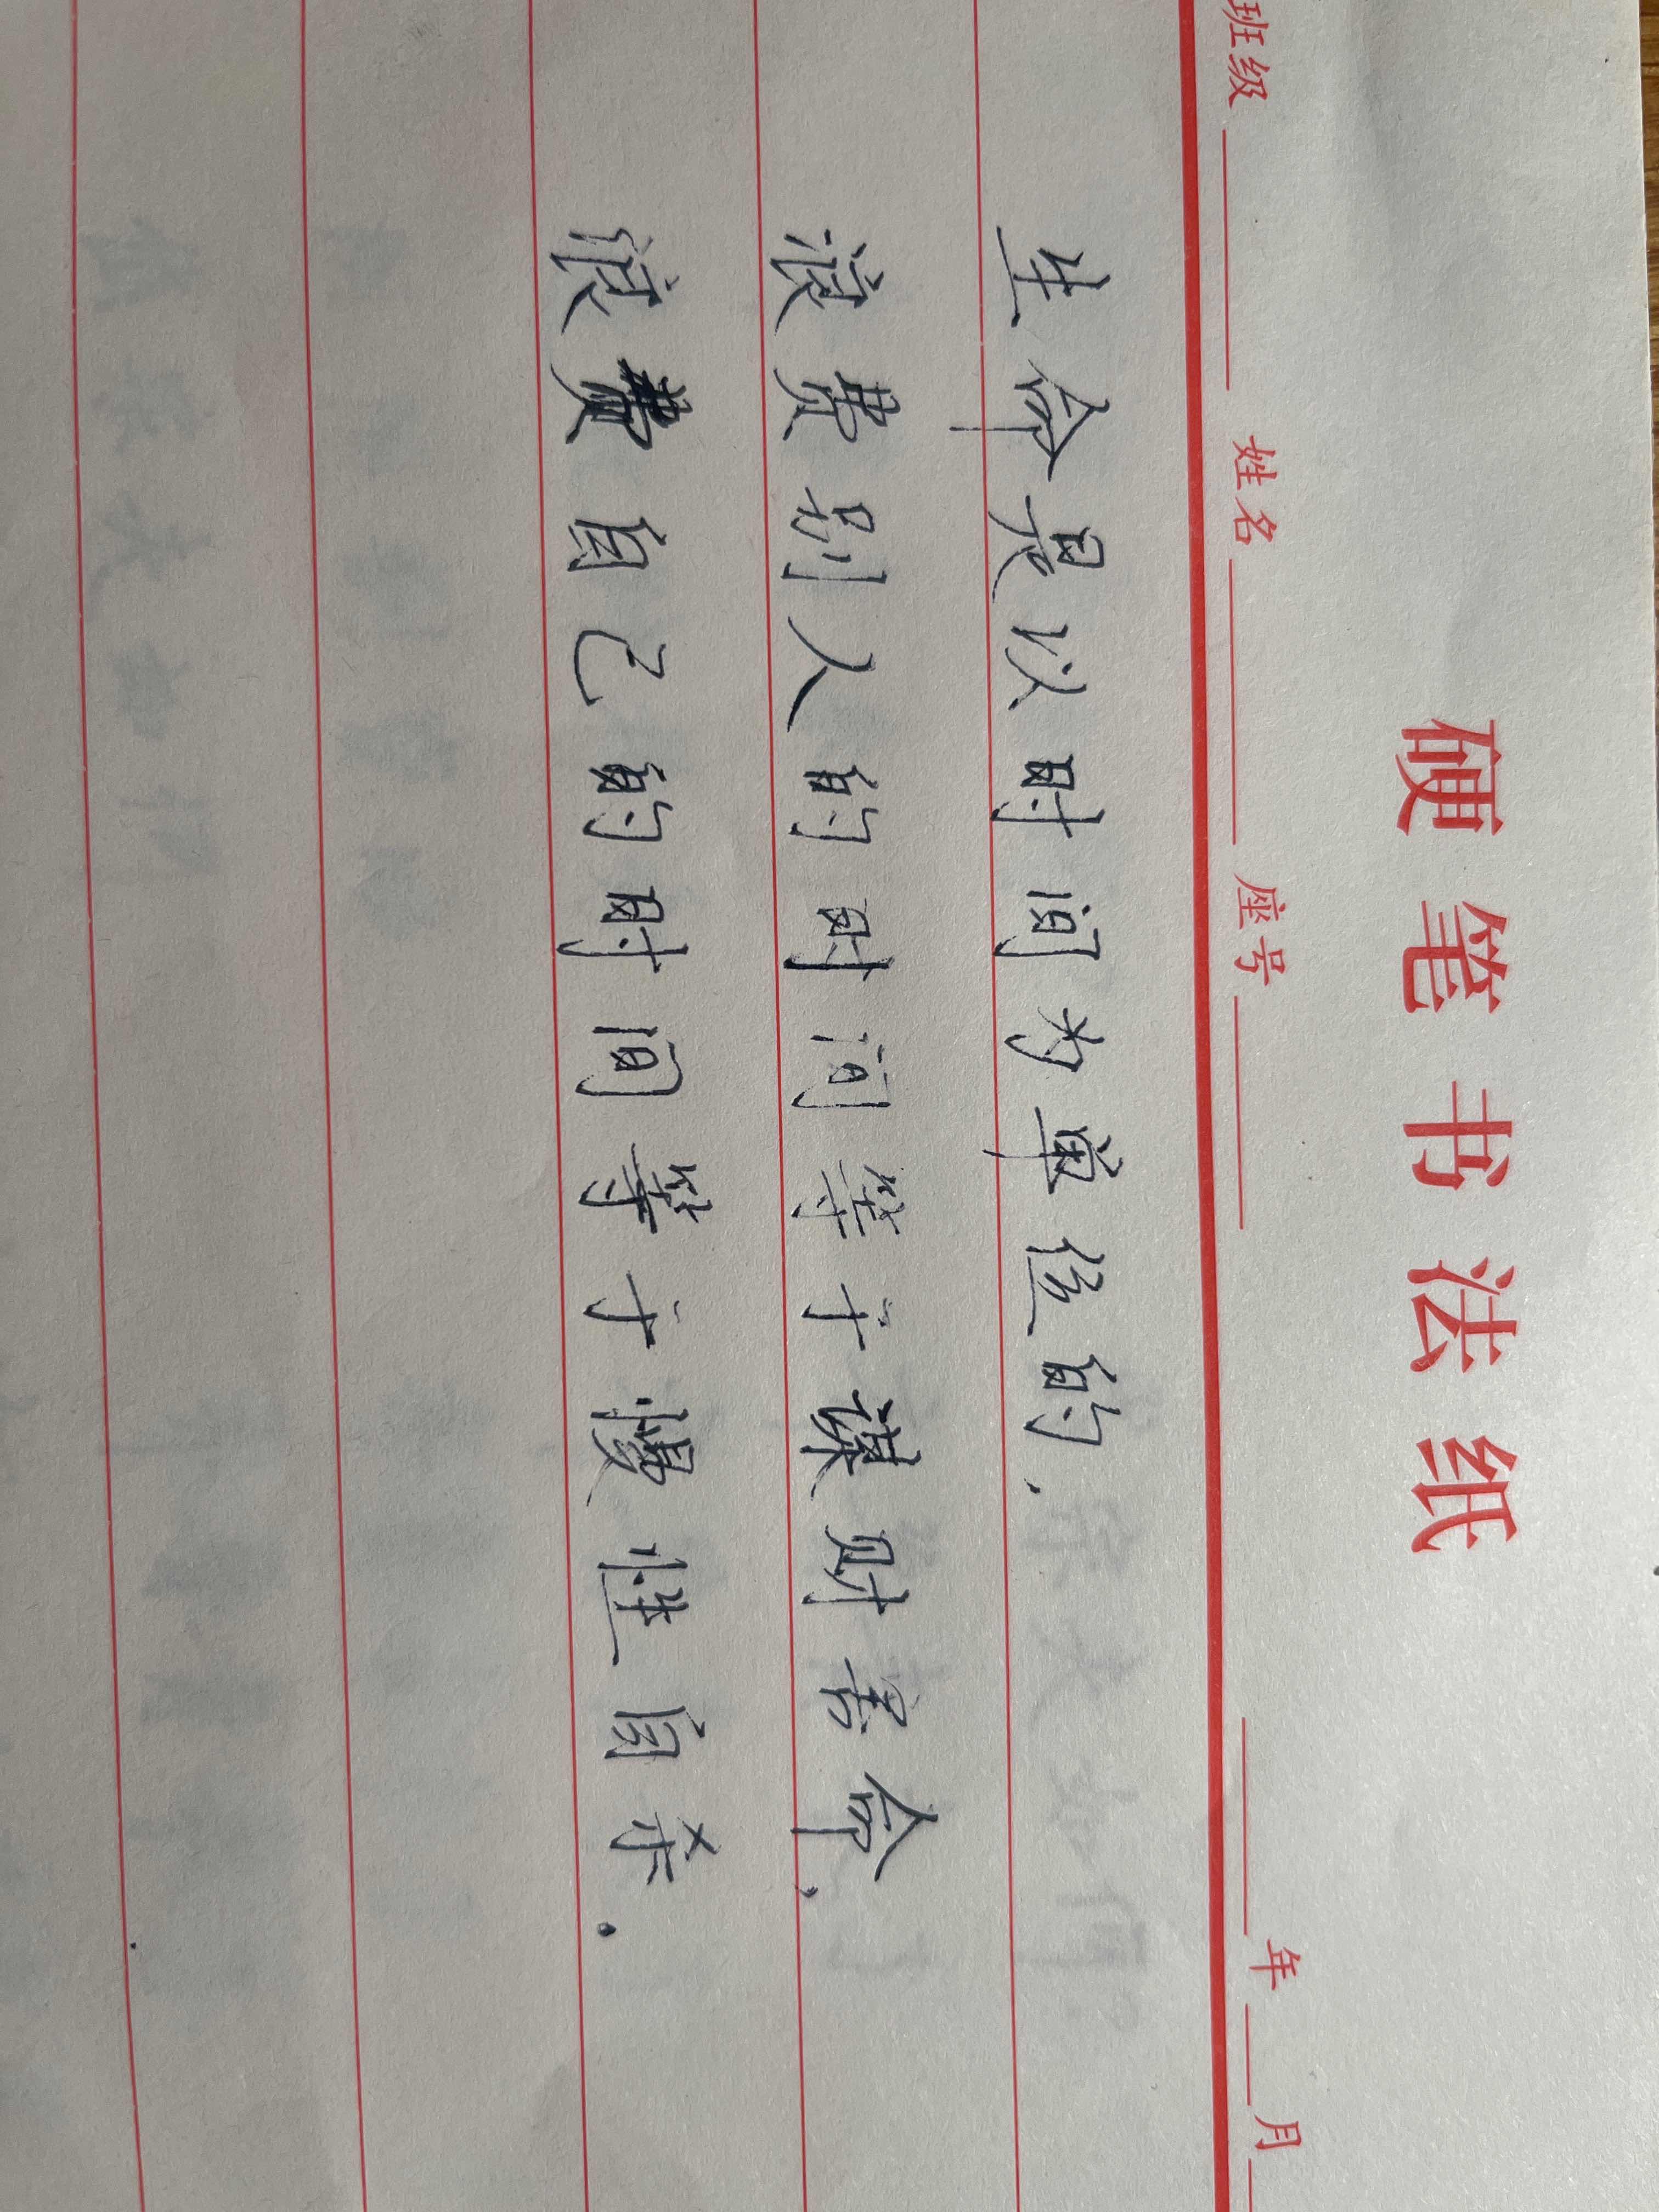 硬笔书法纸
班级 姓名 座号 年 月
生命是以时间为单位的.
浪费别人的时间等于谋财害命.
浪费自己的时间等于慢性自杀.